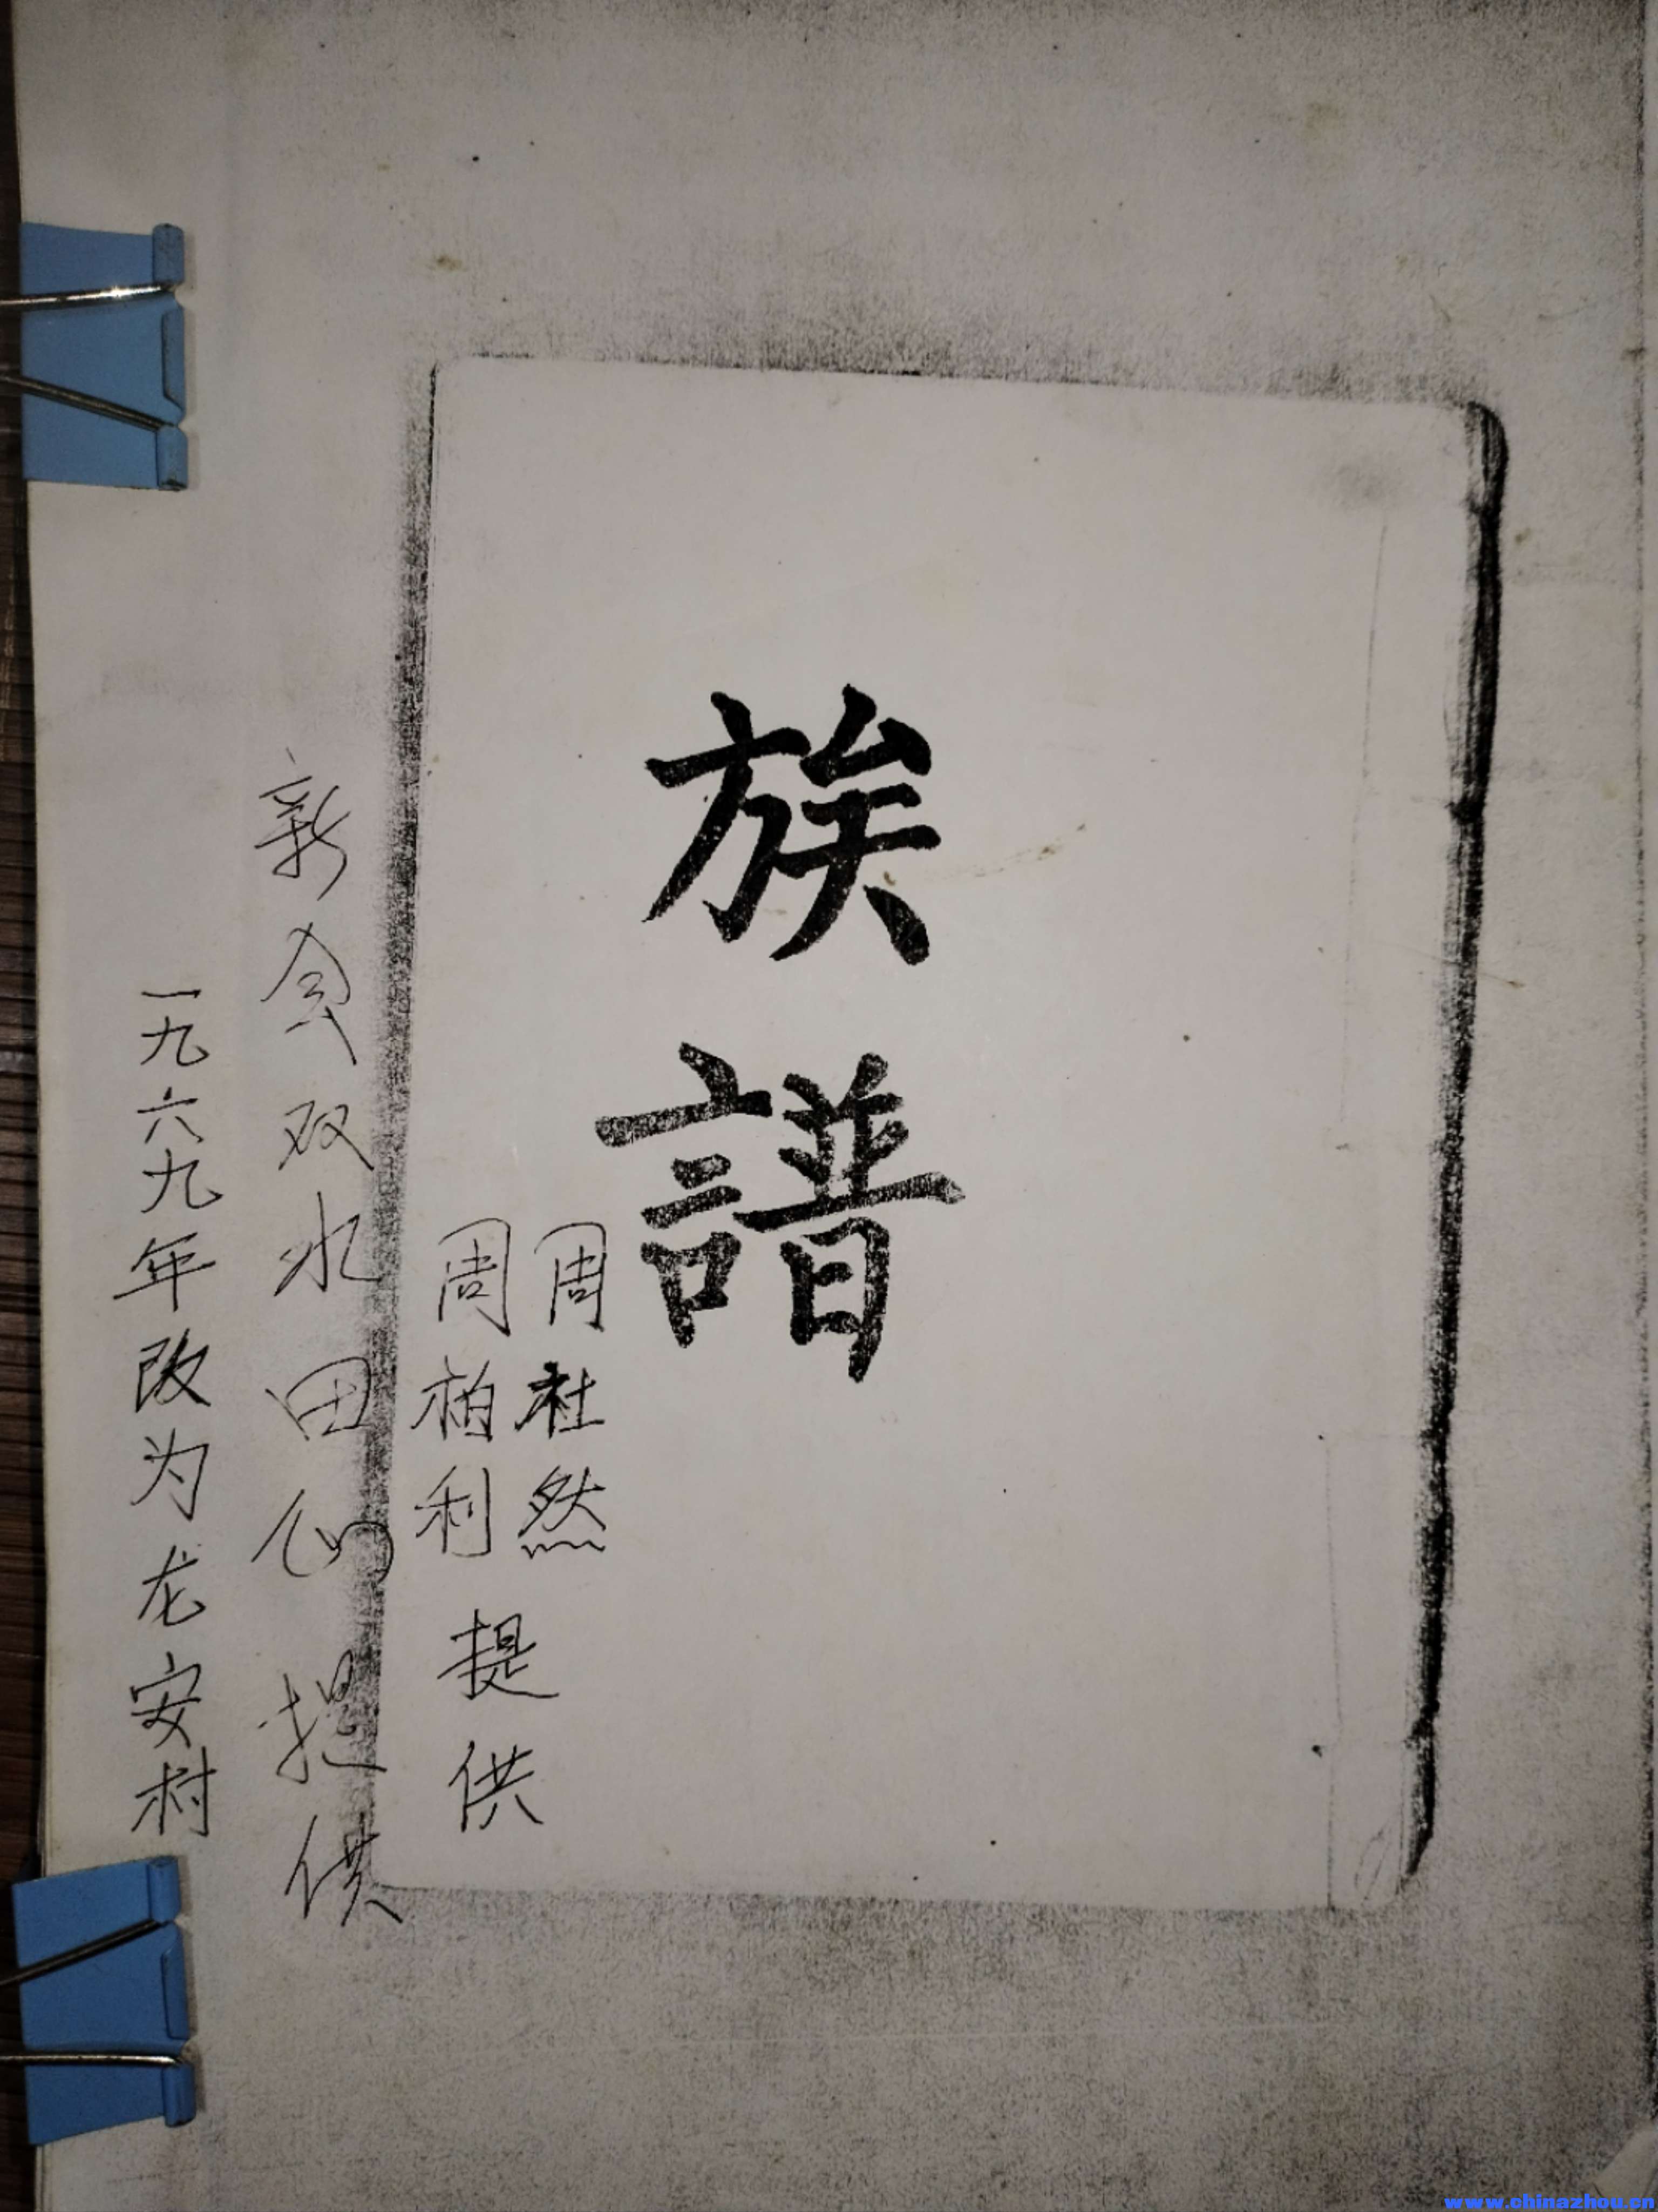 族譜
周社然
周柏利
提供
新会双水田心提供
一九六九年改为龙安村
www.chinazhou.cn